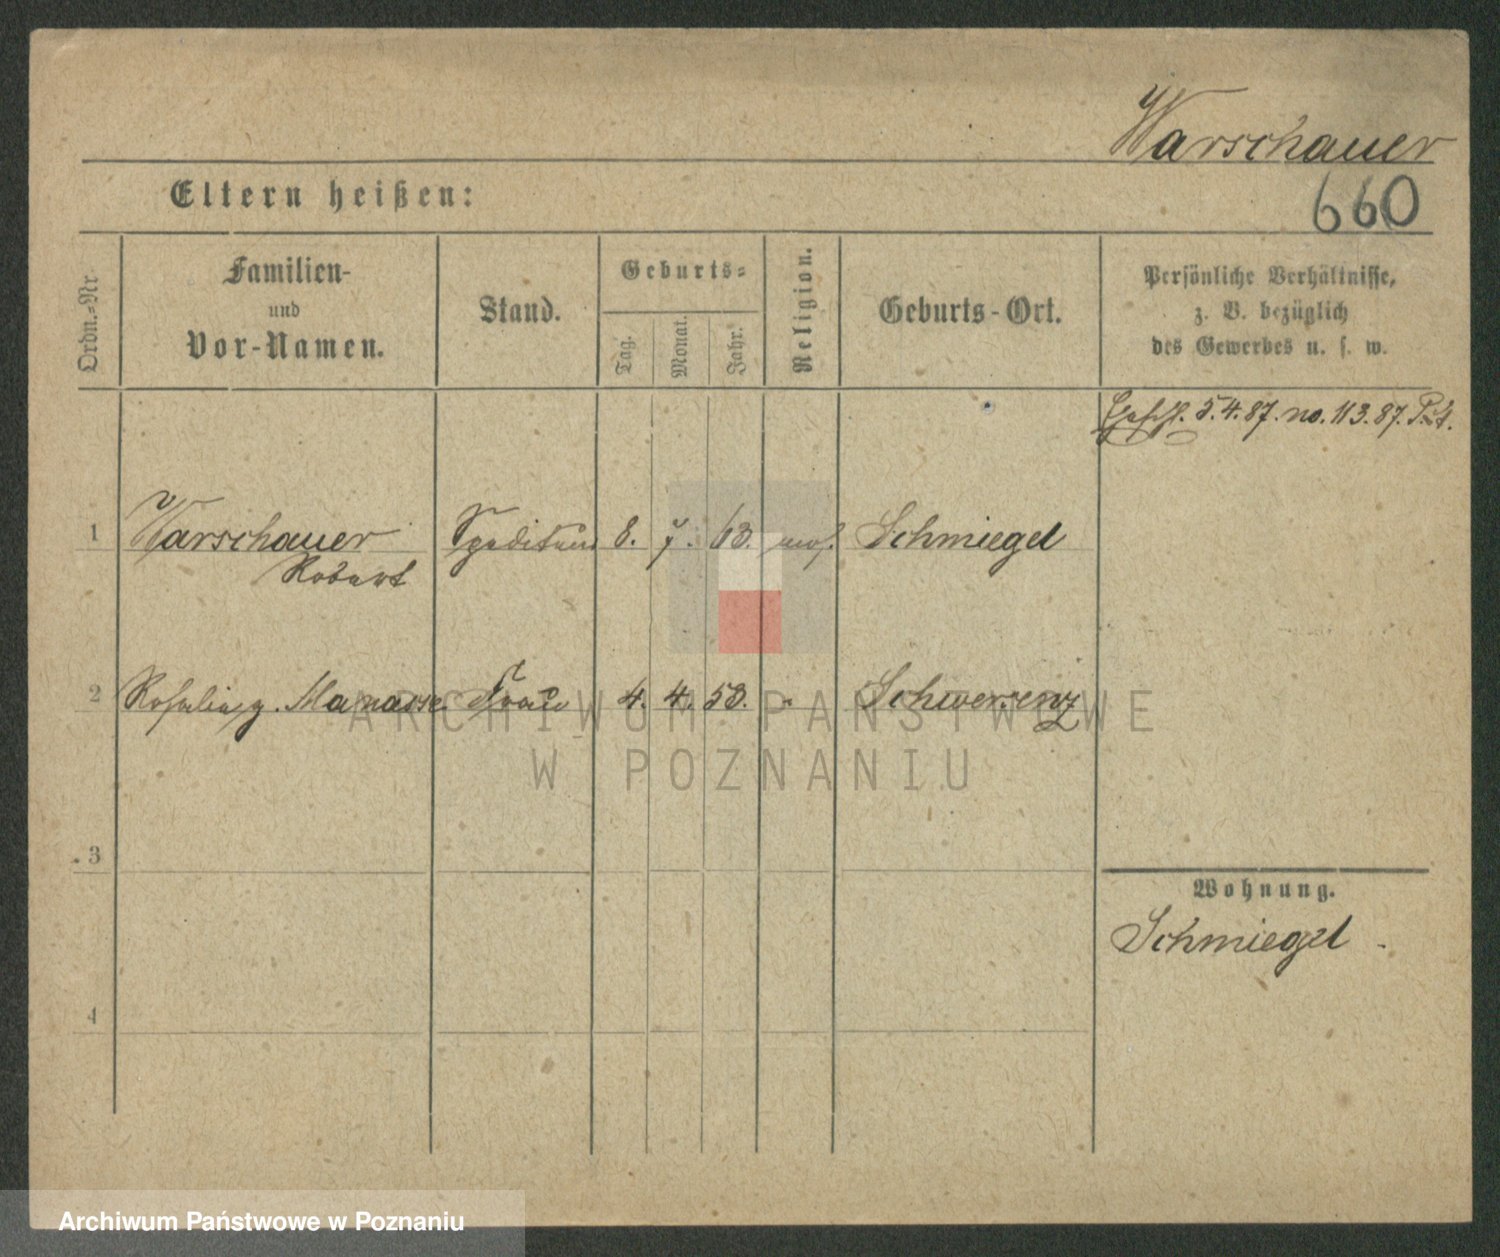 Warschauer
660
Eltern heißen:
Ordn.-Nr
Familien-
und
Vor-Namen.
Stand.
Geburts-
Tag.
Monat.
Jahr.
Religion.
Geburts-Ort.
Persönliche Verhältnisse,
z. B. bezüglich
des Gewerbes u. s. w.
5.4.87. no. 113.87. P.A.
1 Warschauer Spediteur 8. 7. 63. mos. Schmiegel
Robert
2 Rosalie g. Manasse Frau 4. 4. 58. " Schwersenz
ARCHIWUM PAŃSTWOWE
W POZNANIU
3
Wohnung.
Schmiegel
4
Archiwum Państwowe w Poznaniu